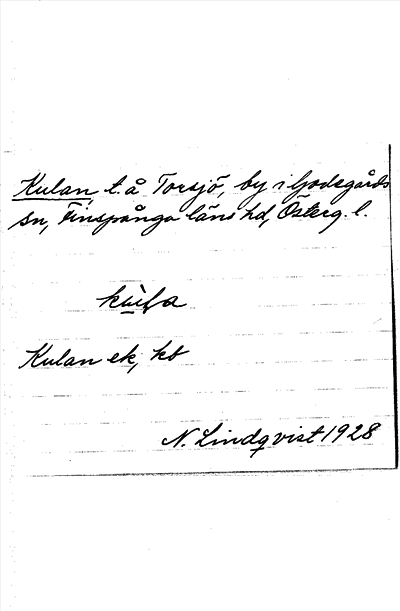 Kulan, t. å Torsjö, by i Godegårds
sn, Finspånga läns hd, Österg. l.
Kulan ek, kt
N. Lindqvist 1928